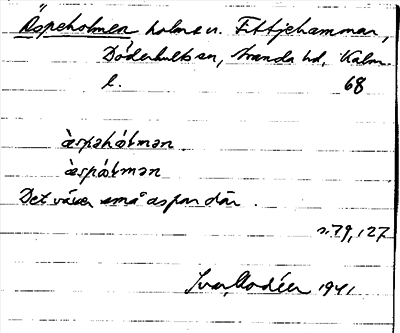 Äspeholmen holme v. Fittjehammar,
Döderhults sn, Stranda hd, Kalm.
l. 68
àspəhólmən
àspólmən
Det växer små aspar där.
s. 79, 127
Ivar Modéer 1941